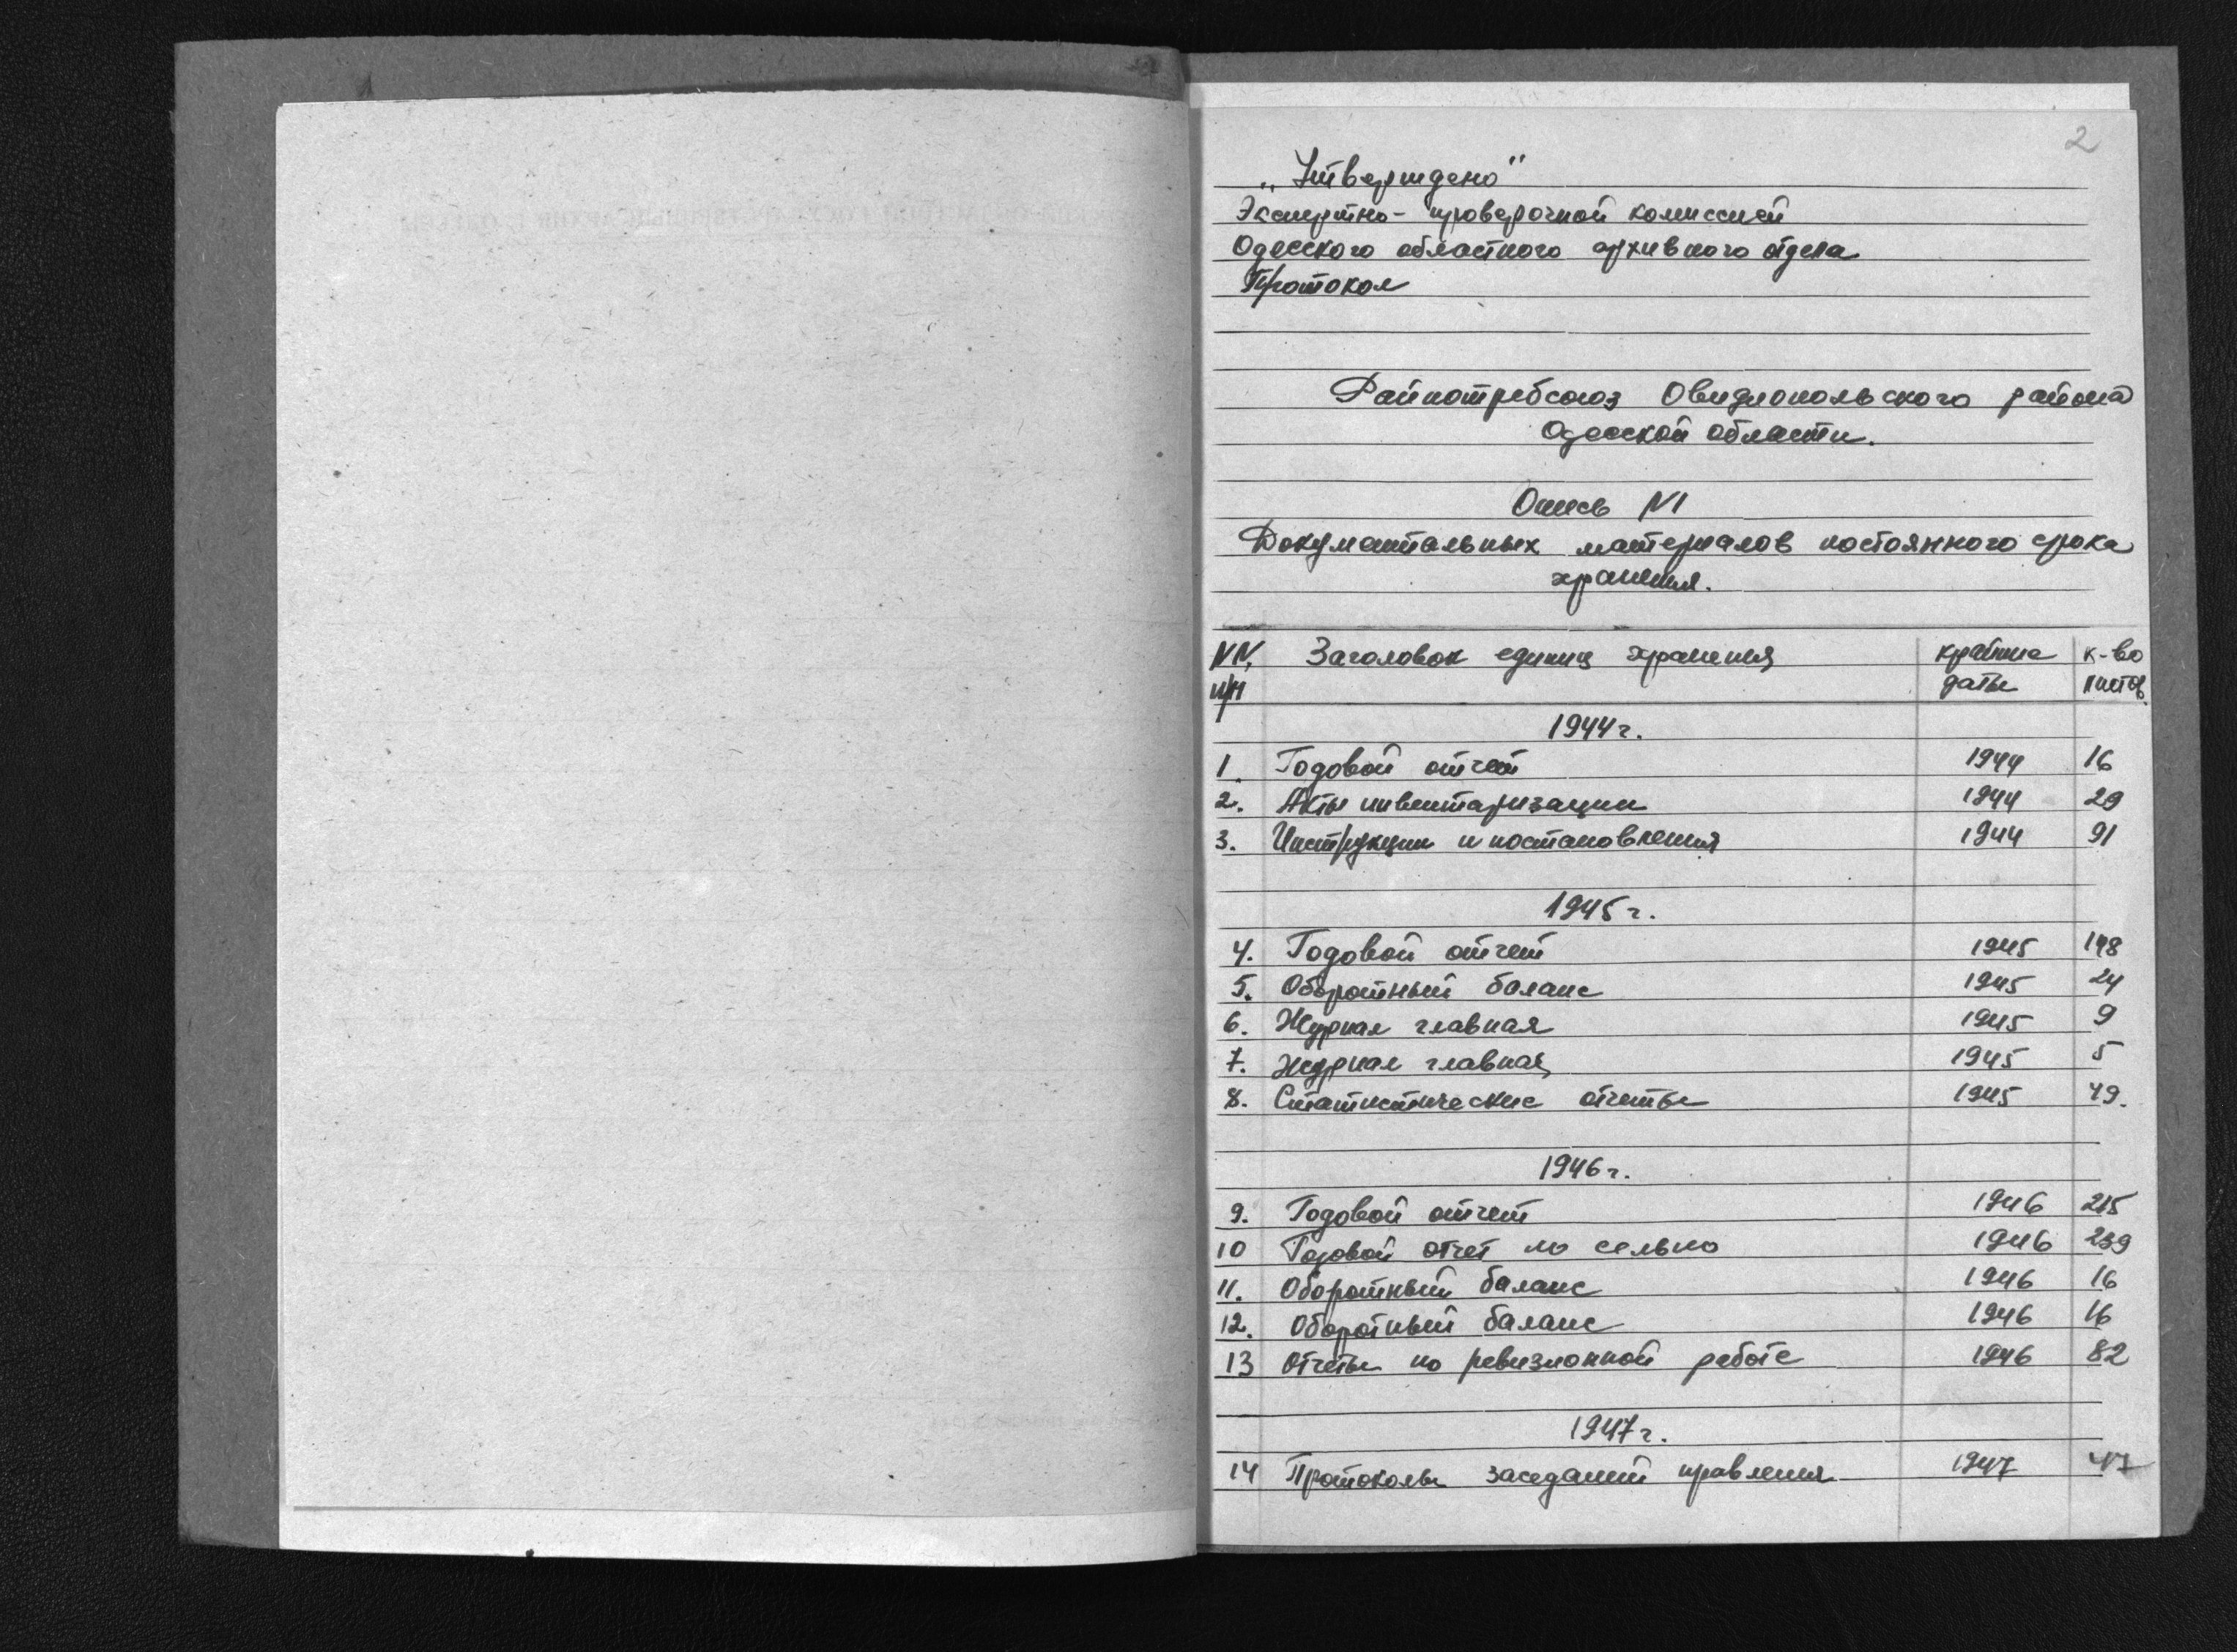 2
„Утверждено"
Экспертно-проверочной комиссией
Одесского областного архивного отдела
Протокол
Райпотребсоюз Овидиопольского района
Одесской области.
Опись N1
Документальных материалов постоянного срока
хранения.
NN Заголовок единиц хранения крайние к-во
п/п даты листов.
1944 г.
1. Годовой отчет 1944 16
2. Акты инвентаризации 1944 29
3. Инструкции и постановления 1944 91
1945 г.
4. Годовой отчет 1945
5. Оборотный баланс 1945 24
6. Журнал главная 1945 9
7. Журнал главная 1945 5
8. Статистические отчеты 1945 49.
1946 г.
9. Годовой отчет 1946 215
10 Годовой отчет по сельпо 1946 239
11. Оборотный баланс 1946 16
12. Оборотный баланс 1946 16
13 Отчеты по ревизионной работе 1946 82
1947 г.
14 Протоколы заседаний правления 1947 47